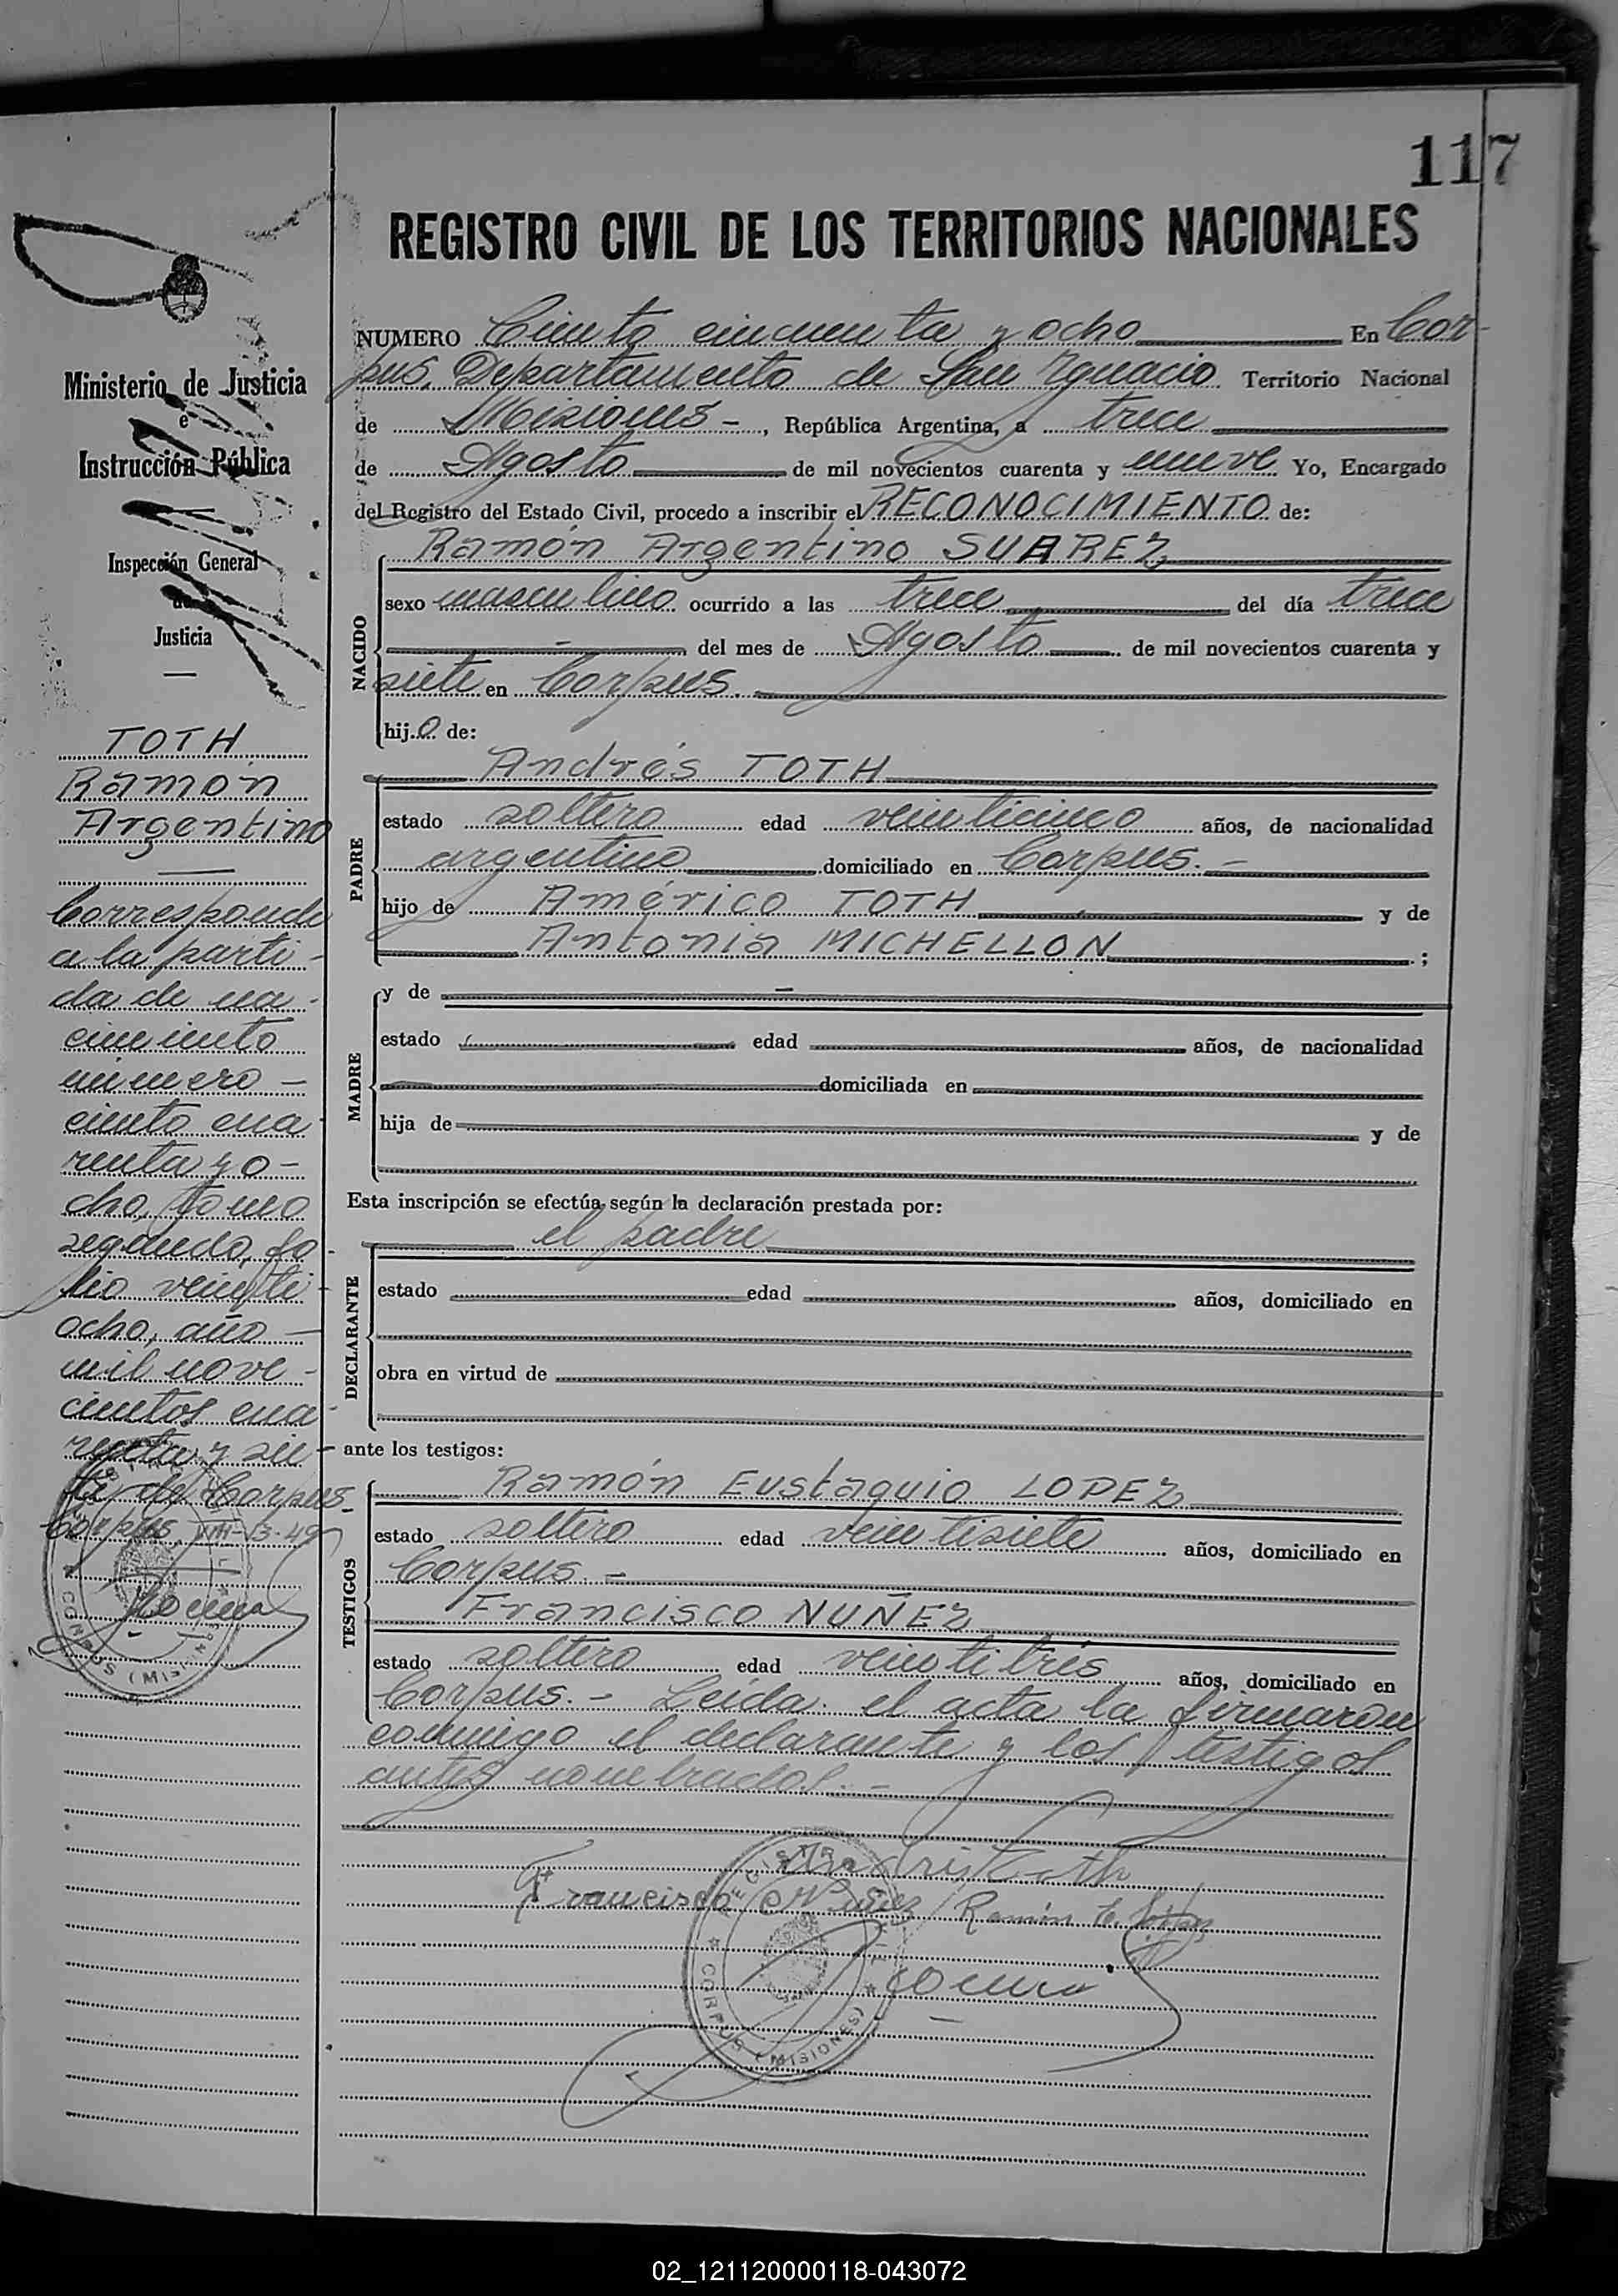 117
REGISTRO CIVIL DE LOS TERRITORIOS NACIONALES
Ministerio de Justicia
e
Instrucción Pública
Inspección General
de
Justicia
TOTH
Ramón
Argentino
Corresponde
a la parti-
da de na-
cimiento
número -
ciento cua-
renta y o-
cho, tomo
segundo, fo-
lio veinti-
ocho, año -
mil nove-
cientos cua-
renta y sie-
te, de Corpus.
Corpus, VIII-13-49
CORPUS (MISIONES)
NUMERO Ciento cincuenta y ocho En Cor-
pus, Departamento de San Ygnacio Territorio Nacional
de Misiones -, República Argentina, a trece
de Agosto de mil novecientos cuarenta y nueve Yo, Encargado
del Registro del Estado Civil, procedo a inscribir el RECONOCIMIENTO de:
NACIDO
Ramón Argentino SUAREZ
sexo masculino ocurrido a las trece del día trece
- del mes de Agosto de mil novecientos cuarenta y
siete en Corpus.
hijo de:
PADRE
Andrés TOTH
estado soltero edad veinticinco años, de nacionalidad
argentino domiciliado en Corpus. -
hijo de Américo TOTH y de
Antonia MICHELLON ;
MADRE
y de -
estado edad años, de nacionalidad
domiciliada en
hija de y de
Esta inscripción se efectúa según la declaración prestada por:
el padre
DECLARANTE
estado edad años, domiciliado en
obra en virtud de
ante los testigos:
TESTIGOS
Ramón Eustaquio LOPEZ
estado soltero edad veintisiete años, domiciliado en
Corpus. -
Francisco NUÑEZ
estado soltero edad veintitrés años, domiciliado en
Corpus. - Leída el acta la firmaron
conmigo el declarante y los testigos
antes nombrados. -
Andrés Toth
Francisco Nuñez Ramón E. López
CORPUS (MISIONES)
02_121120000118-043072